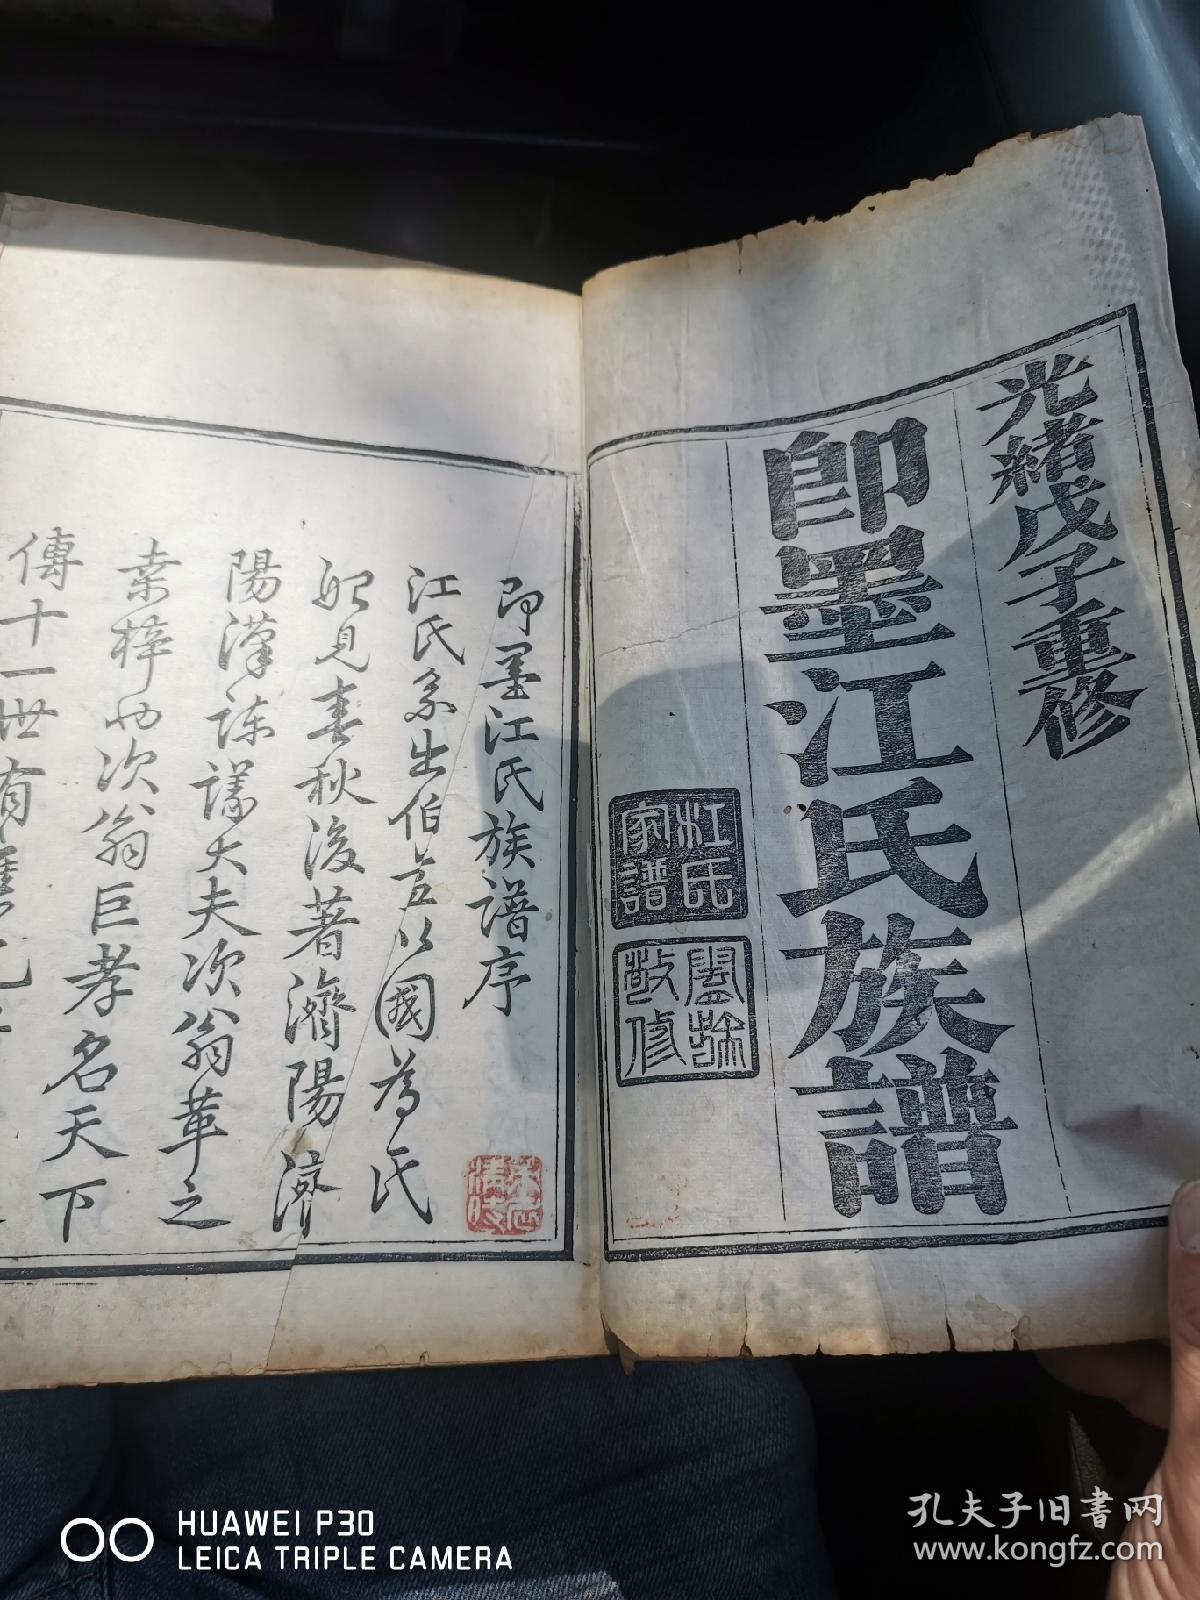 光緒戊子重修
即墨江氏族譜
江氏
家譜
闔族
敬修
即墨江氏族譜序
江氏系出伯益以國為氏
肶見春秋後著濟陽濟
陽漢諫議大夫次翁革之
桑梓也次翁巨孝名天下
傳十一世有
HUAWEI P30
LEICA TRIPLE CAMERA
孔夫子旧书网
www.kongfz.com